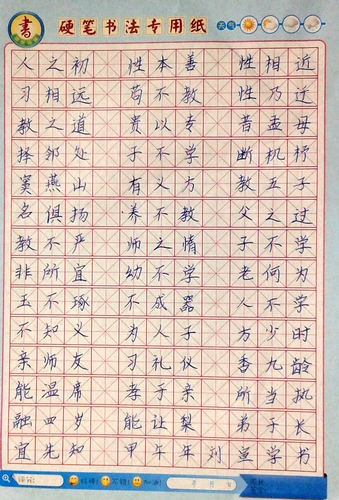 書 硬笔书法专用纸 天气
人之初 性本善 性相近
习相远 苟不教 性乃迁
教之道 贵以专 昔孟母
择邻处 子不学 断机杼
窦燕山 有义方 教五子
名俱扬 养不教 父之过
教不严 师之情 子不学
非所宜 幼不学 老何为
玉不琢 不成器 人不学
不知义 为人子 方少时
亲师友 习礼仪 香九龄
能温席 孝于亲 所当执
融四岁 能让梨 弟于长
宜先知 甲午年刘宣学书
不错! 加油! 年 月 日